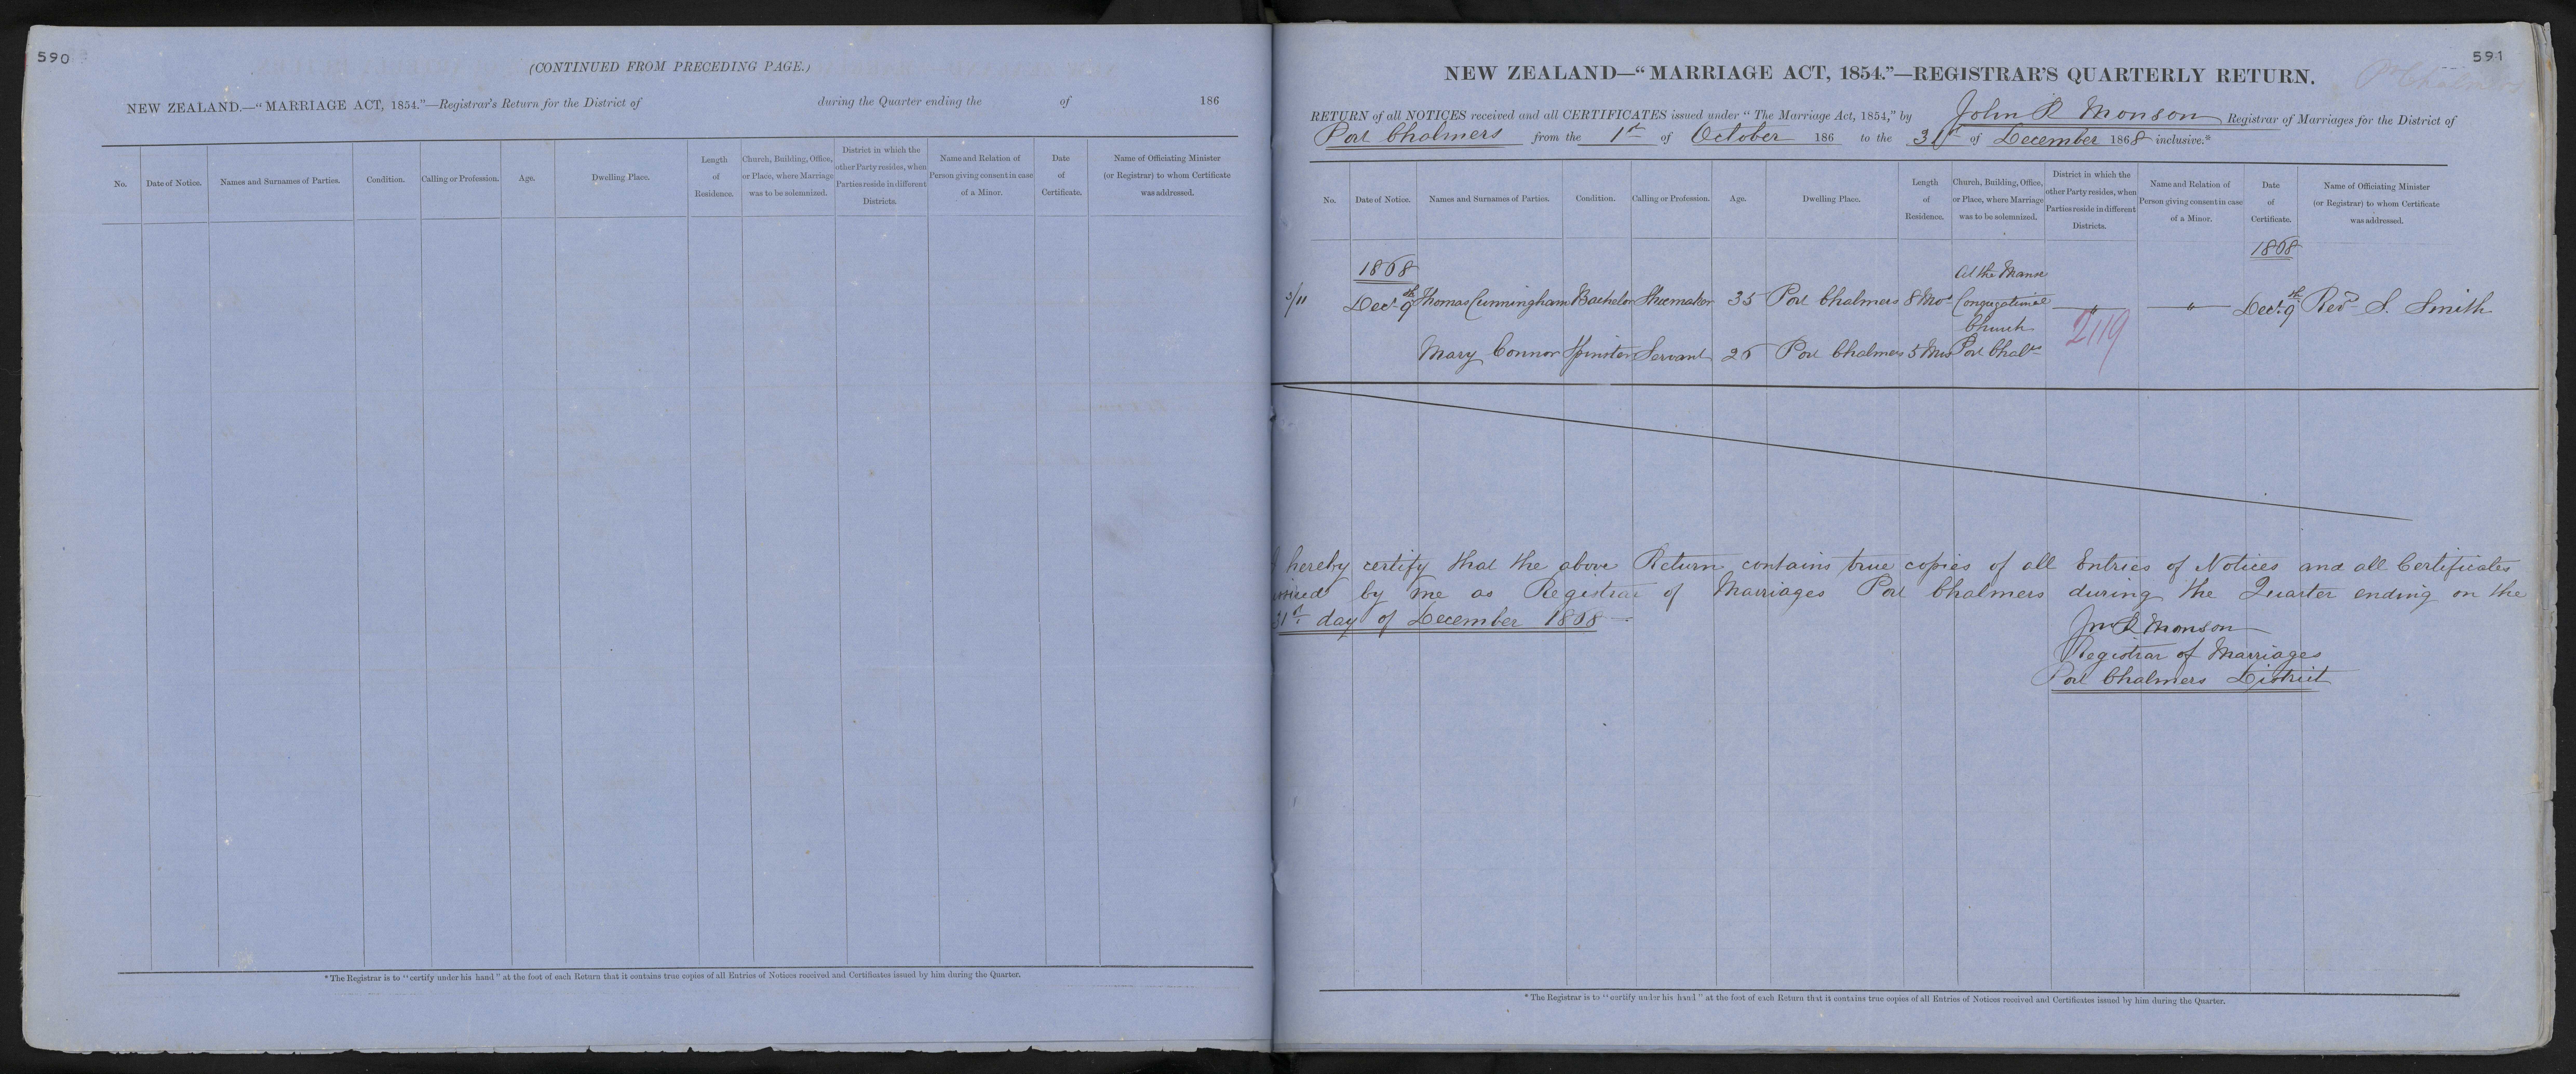 590
(CONTINUED FROM PRECEDING PAGE.)
NEW ZEALAND.—"MARRIAGE ACT, 1854."—Registrar's Return for the District of during the Quarter ending the of 186
No. Date of Notice. Names and Surnames of Parties. Condition. Calling or Profession. Age. Dwelling Place. Length of Residence. Church, Building, Office, or Place, where Marriage was to be solemnized. District in which the other Party resides, when Parties reside in different Districts. Name and Relation of Person giving consent in case of a Minor. Date of Certificate. Name of Officiating Minister (or Registrar) to whom Certificate was addressed.
* The Registrar is to "certify under his hand" at the foot of each Return that it contains true copies of all Entries of Notices received and Certificates issued by him during the Quarter.
591
Pt Chalmers
NEW ZEALAND—"MARRIAGE ACT, 1854."—REGISTRAR'S QUARTERLY RETURN.
RETURN of all NOTICES received and all CERTIFICATES issued under "The Marriage Act, 1854," by John R Monson Registrar of Marriages for the District of
Port Chalmers from the 1st of October 186 to the 31st of December 1868 inclusive.*
No. Date of Notice. Names and Surnames of Parties. Condition. Calling or Profession. Age. Dwelling Place. Length of Residence. Church, Building, Office, or Place, where Marriage was to be solemnized. District in which the other Party resides, when Parties reside in different Districts. Name and Relation of Person giving consent in case of a Minor. Date of Certificate. Name of Officiating Minister (or Registrar) to whom Certificate was addressed.
1868 1868
At the Manse
/11 Decr 9th Thomas Cunningham Bachelor Shoemaker 35 Port Chalmers 8 Mos Congregational — " — — " — Decr 9th Revd S. Smith
Church
2119
Mary Connor Spinster Servant 26 Port Chalmers 5 Mos Port Chalrs
I hereby certify that the above Return contains true copies of all Entries of Notices and all Certificates
by me as Registrar of Marriages Port Chalmers during the Quarter ending on the
31st day of December 1868 —
Jno R Monson
Registrar of Marriages
Port Chalmers District
* The Registrar is to "certify under his hand" at the foot of each Return that it contains true copies of all Entries of Notices received and Certificates issued by him during the Quarter.